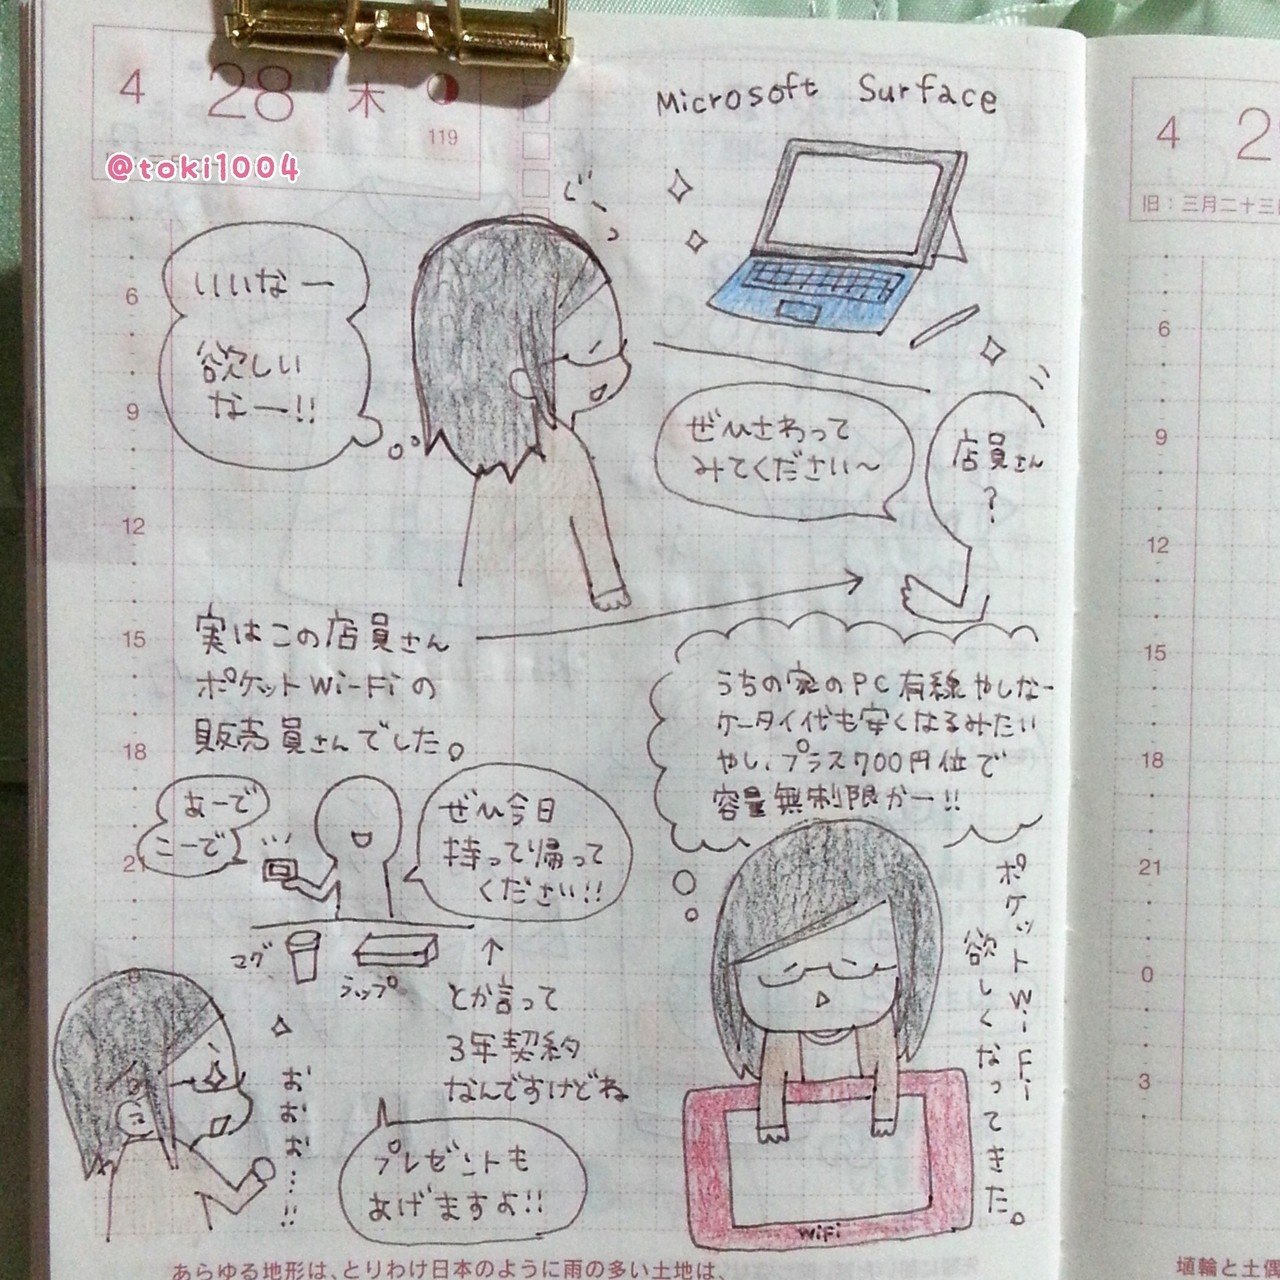 4 28 木
119
@toki1004
Microsoft Surface
いいなー
欲しい
なー!!
ぜひさわって
みてください〜
店員さん
?
実はこの店員さん
ポケットWi-Fiの
販売員さんでした。
うちの家のPC有線やしなー
ケータイ代も安くなるみたい
やし、プラス700円位で
容量無制限かー!!
あーで
こーで
ぜひ今日
持って帰って
ください!!
マグ
ラップ
↑
とか言って
3年契約
なんですけどね
おおお…!!
プレゼントも
あげますよ!!
ポケットWi-Fi
欲しくなってきた。
WiFi
6
9
12
15
18
21
0
あらゆる地形は、とりわけ日本のように雨の多い土地は、
4 2
旧:三月二十三
6
9
12
15
18
21
0
3
埴輪と土偶